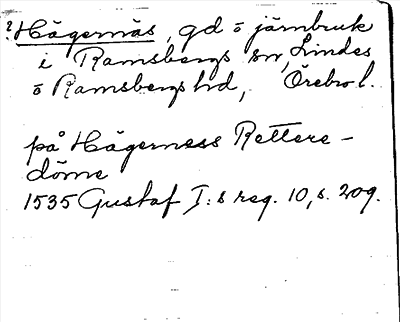 ? Hägernäs, gd o järnbruk
i Ramsbergs sn, Lindes
o Ramsbergs hd, Örebro l.
på Hägerness Rettere-
döme
1535 Gustaf I:s reg. 10, s. 209.